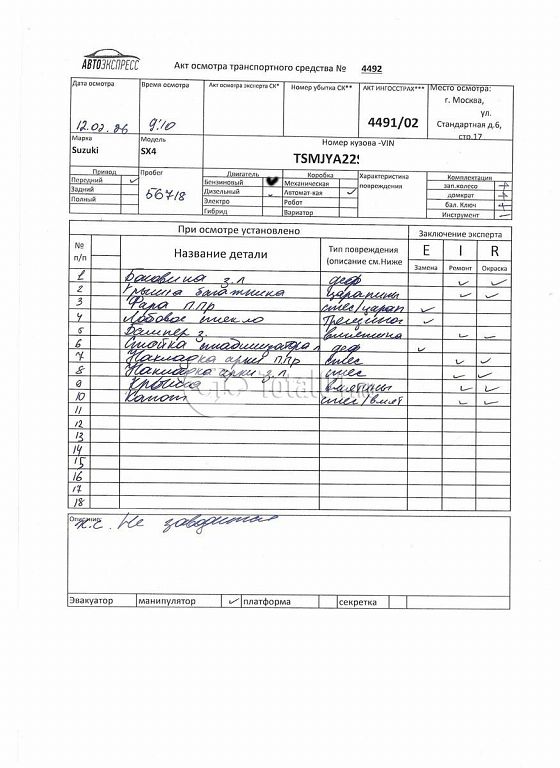 АВТОЭКСПРЕСС
Акт осмотра транспортного средства № 4492
Дата осмотра Время осмотра Акт осмотра эксперта СК* Номер убытка СК** АКТ ИНГОССТРАХ*** Место осмотра:
г. Москва,
ул.
12.02.26 9:10 4491/02 Стандартная д.6,
стр.17
Марка Модель Номер кузова -VIN
Suzuki SX4 TSMJYA22S
Привод Пробег Двигатель Коробка Характеристика повреждения Комплектация
Передний Бензиновый Механическая зап.колесо
Задний 56718 Дизельный Автомат-кая домкрат
Полный Электро Робот бал. Ключ
Гибрид Вариатор Инструмент
При осмотре установлено Заключение эксперта
№ п/п Название детали Тип повреждения (описание см.Ниже E I R
Замена Ремонт Окраска
1 Боковина з.л деф
2 Крышка багажника царапины
3 Фара ППР слез/царап
4 Лобовое стекло
5 Бампер з. вмятина
6 Стойка стабилизатора п деф
7 Накладка арки ППр
8 Накладка арки з.л.
9 Крышка вмятины
10 Капот
11
12
13
14
15
16
17
18
Описание:
Не заводится
Эвакуатор манипулятор платформа секретка
Total